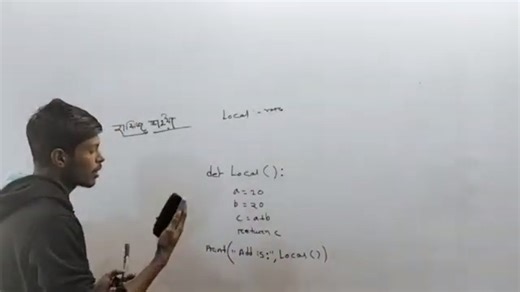 Local - vars
def Local():
a=20
b=20
c=a+b
return c
Print("Add is:", Local())